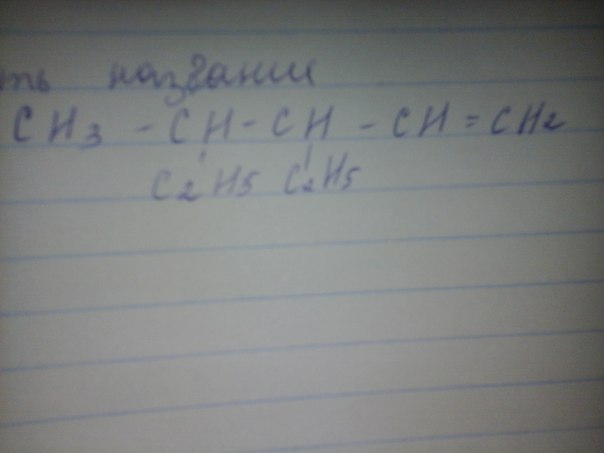 ть название
CH3 - CH - CH - CH = CH2
C2H5 C2H5